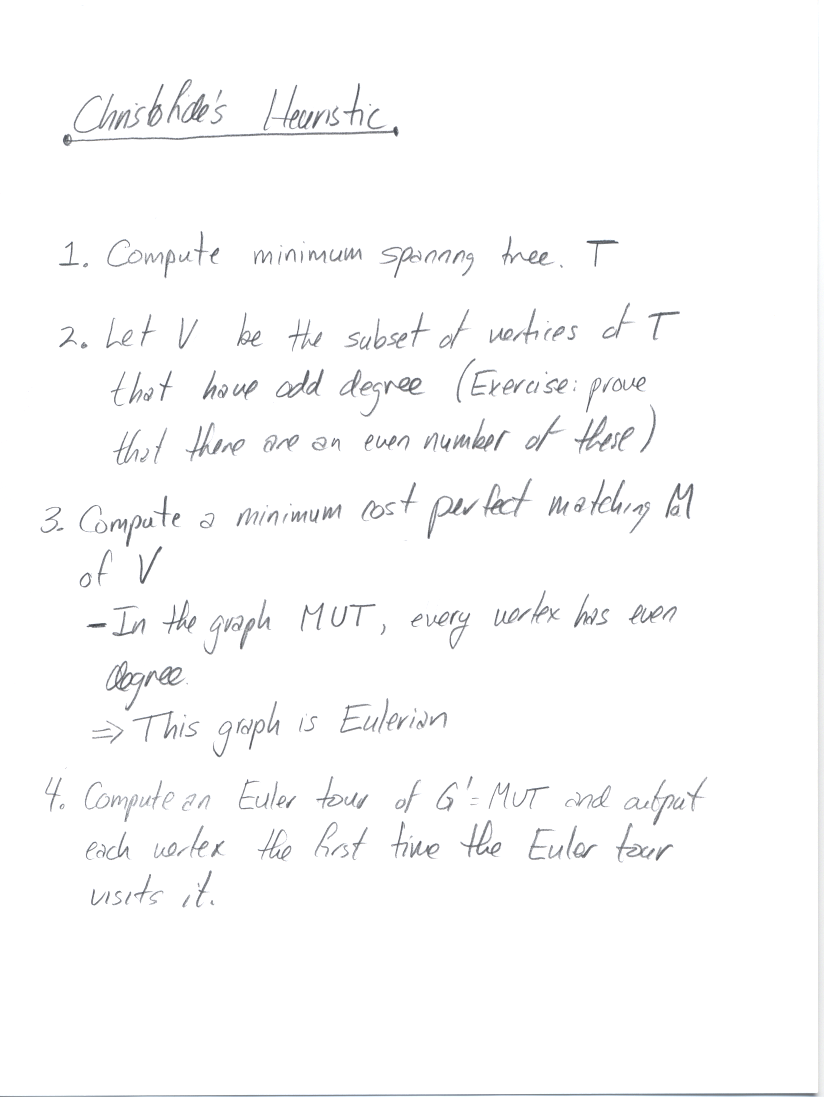 Christofide's Heuristic
1. Compute minimum spanning tree. T
2. Let V be the subset of vertices of T
that have odd degree (Exercise: prove
that there are an even number of these)
3. Compute a minimum cost perfect matching M
of V
- In the graph M∪T, every vertex has even
degree.
⇒ This graph is Eulerian
4. Compute an Euler tour of G'=M∪T and output
each vertex the first time the Euler tour
visits it.